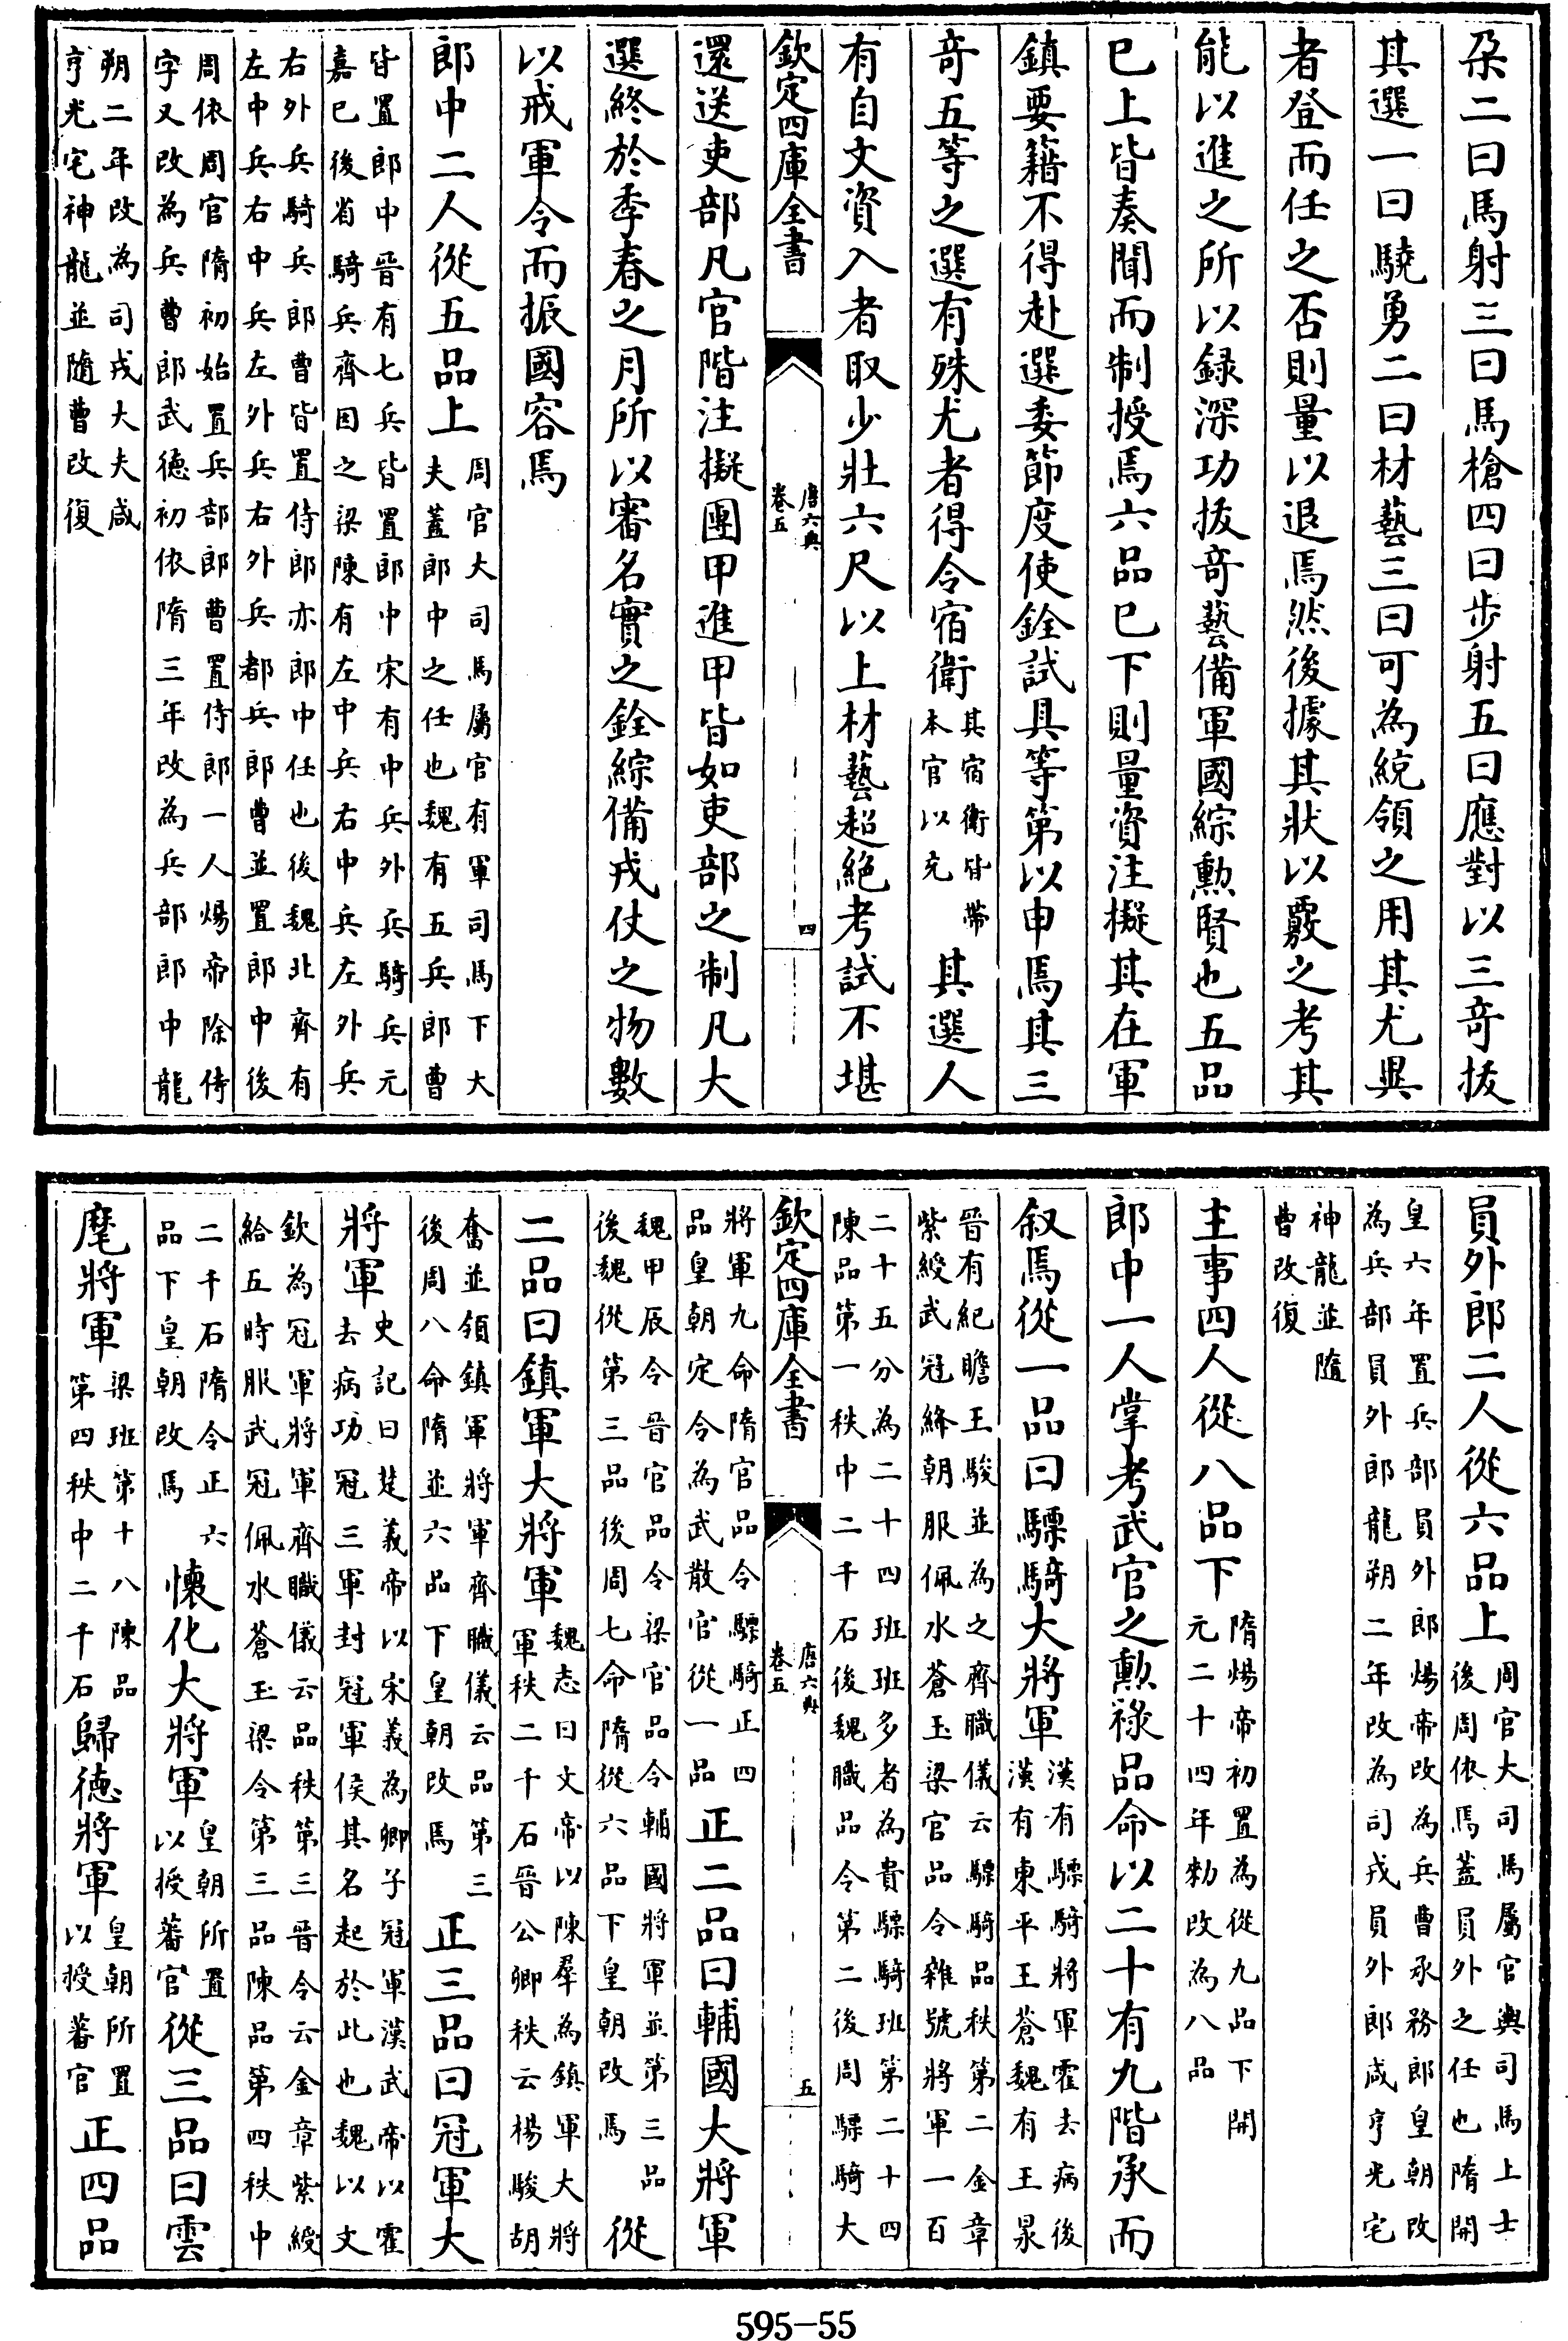 朶二曰馬射三曰馬槍四曰步射五曰應對以三奇拔
其選一曰驍勇二曰材藝三曰可為統領之用其尤異
者登而任之否則量以退焉然後據其狀以覈之考其
能以進之所以録深功拔奇藝備軍國綜勲賢也五品
已上皆奏聞而制授焉六品已下則量資注擬其在軍
鎮要籍不得赴選委節度使銓試具等第以申焉其三
奇五等之選有殊尤者得令宿衛其宿衛皆帶本官以充其選人
有自文資入者取少壯六尺以上材藝超絶考試不堪
欽定四庫全書
唐六典
卷五
四
還送吏部凡官階注擬團甲進甲皆如吏部之制凡大
選終於季春之月所以審名實之銓綜備戎仗之物數
以戒軍令而振國容焉
郎中二人從五品上周官大司馬屬官有軍司馬下大夫蓋郎中之任也魏有五兵郎曹
皆置郎中晉有七兵皆置郎中宋有中兵外兵騎兵元
嘉已後省騎兵齊因之梁陳有左中兵右中兵左外兵
右外兵騎兵郎曹皆置侍郎亦郎中任也後魏北齊有
左中兵右中兵左外兵右外兵都兵郎曹並置郎中後
周依周官隋初始置兵部郎曹置侍郎一人煬帝除侍
字又改為兵曹郎武德初依隋三年改為兵部郎中龍
朔二年改為司戎大夫咸
亨光宅神龍並隨曹改復
員外郎二人從六品上周官大司馬屬官輿司馬上士後周依焉蓋員外之任也隋開
皇六年置兵部員外郎煬帝改為兵曹承務郎皇朝改
為兵部員外郎龍朔二年改為司戎員外郎咸亨光宅
神龍並隨
曹改復
主事四人從八品下隋煬帝初置為從九品下開元二十四年勑改為八品
郎中一人掌考武官之勲禄品命以二十有九階承而
叙焉從一品曰驃騎大將軍漢有驃騎將軍霍去病後漢有東平王蒼魏有王泉
晉有紀瞻王駿並為之齊職儀云驃騎品秩第二金章
紫綬武冠絳朝服佩水蒼玉梁官品令雜號將軍一百
二十五分為二十四班班多者為貴驃騎班第二十四
陳品第一秩中二千石後魏職品令第二後周驃騎大
欽定四庫全書
唐六典
卷五
五
將軍九命隋官品令驃騎正四
品皇朝定令為武散官從一品正二品曰輔國大將軍
魏甲辰令晉官品令梁官品令輔國將軍並第三品
後魏從第三品後周七命隋從六品下皇朝改焉從
二品曰鎮軍大將軍魏志曰文帝以陳羣為鎮軍大將軍秩二千石晉公卿秩云楊駿胡
奮並領鎮軍將軍齊職儀云品第三
後周八命隋並六品下皇朝改焉正三品曰冠軍大
將軍史記曰楚義帝以宋義為卿子冠軍漢武帝以霍去病功冠三軍封冠軍侯其名起於此也魏以文
欽為冠軍將軍齊職儀云品秩第三晉令云金章紫綬
給五時服武冠佩水蒼玉梁令第三品陳品第四秩中
二千石隋令正六
品下皇朝改焉懷化大將軍皇朝所置以授蕃官從三品曰雲
麾將軍梁班第十八陳品第四秩中二千石歸德將軍皇朝所置以授蕃官正四品
595-55